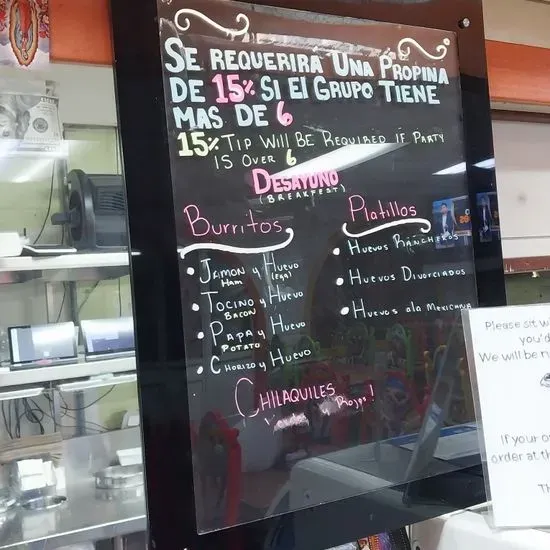 SE REQUERIRÁ UNA PROPINA
DE 15% SI El GRUPO TIENE
MAS DE 6
15% TIP WILL BE REQUIRED IF PARTY
IS OVER 6
DESAYUNO
(BREAKFEST)
Burritos
• JAMON y HUEVO
HAM (EGG)
• TOCINO y HUEVO
BACON
• PAPA y HUEVO
POTATO
• CHORIZO y HUEVO
Platillos
• HUEVOS RANCHEROS
• HUEVOS DIVORCIADOS
• HUEVOS ala MEXICANA
CHILAQUILES
Verdes Rojos!
Please sit w
you'd
We will be ri
If your o
order at th
Th